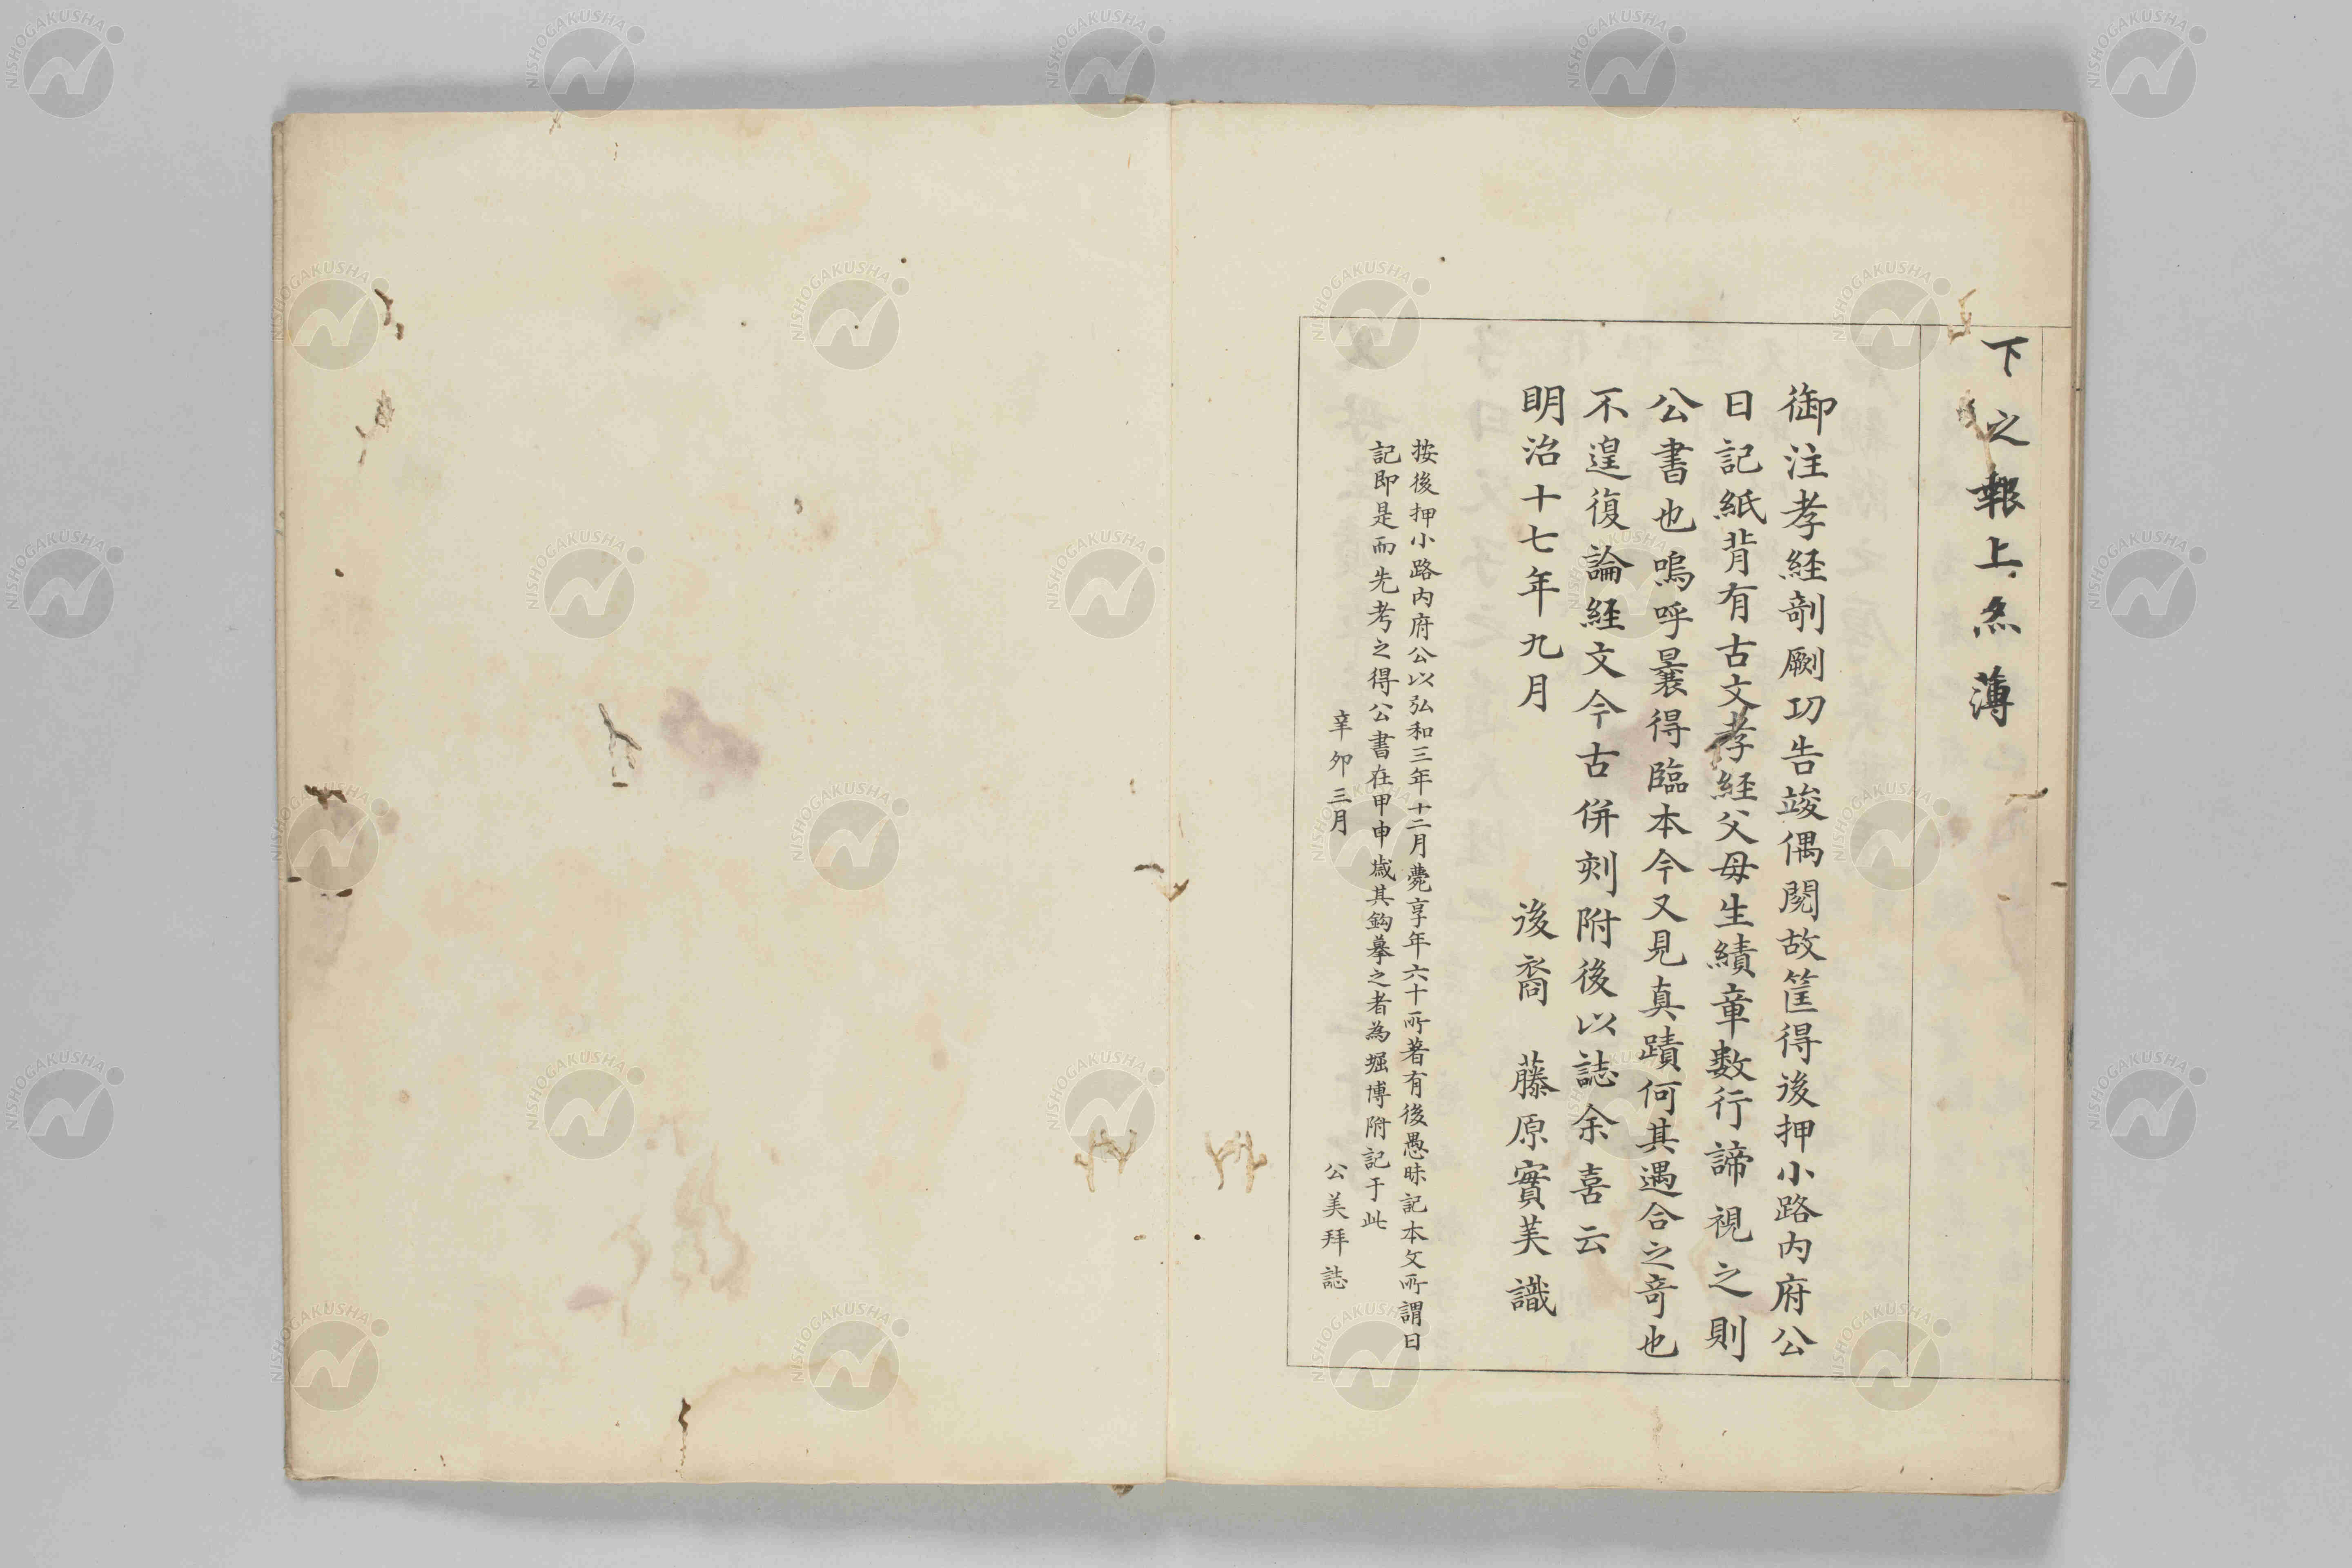 下之報上亦薄
御注孝経剞劂功告竣偶閱故筐得後押小路内府公
日記紙背有古文孝経父母生績章數行諦視之則
公書也嗚呼曩得臨本今又見真蹟何其遇合之奇也
不遑復論経文今古併刻附後以誌余喜云
明治十七年九月 後裔 藤原實美識
按後押小路内府公以弘和三年十二月薨享年六十所著有後愚昧記本文所謂日
記即是而先考之得公書在甲申歳其鈎摹之者為堀博附記于此
辛卯三月 公美拜誌
NISHOGAKUSHA